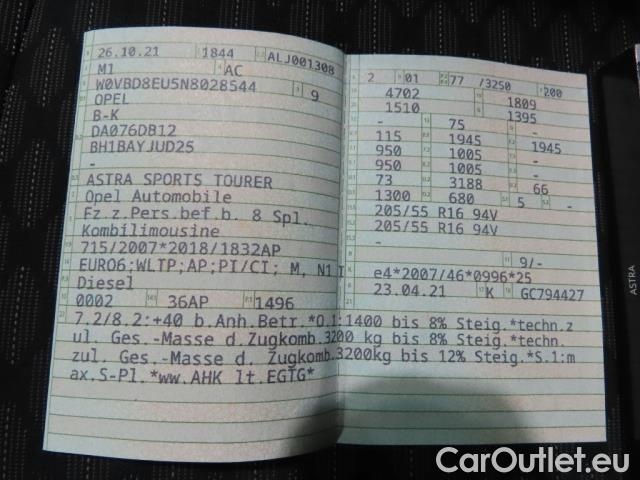 26.10.21 1844 ALJ001308
M1 AC
W0VBD8EU5N8028544 9
OPEL
B-K
DA076DB12
BH1BAYJUD25
-
ASTRA SPORTS TOURER
Opel Automobile
Fz.z.Pers.bef.b. 8 Spl.
Kombilimousine
715/2007*2018/1832AP
EURO6;WLTP;AP;PI/CI; M, N1 I
Diesel
0002 36AP 1496
2 01 77 /3250 200
4702 1809
1510 1395
- 75 -
115 1945 1945
950 1005 -
950 1005 -
73 3188 66
1300 680 5 -
205/55 R16 94V
205/55 R16 94V
-
9/-
e4*2007/46*0996*25
23.04.21 K GC794427
7.2/8.2:+40 b.Anh.Betr.*O.1:1400 bis 8% Steig.*techn.z
ul. Ges.-Masse d.Zugkomb.3200 kg bis 8% Steig.*techn.
zul. Ges.-Masse d. Zugkomb.3200kg bis 12% Steig.*S.1:m
ax.S-Pl.*ww.AHK lt.EGTG*
ASTRA
CarOutlet.eu